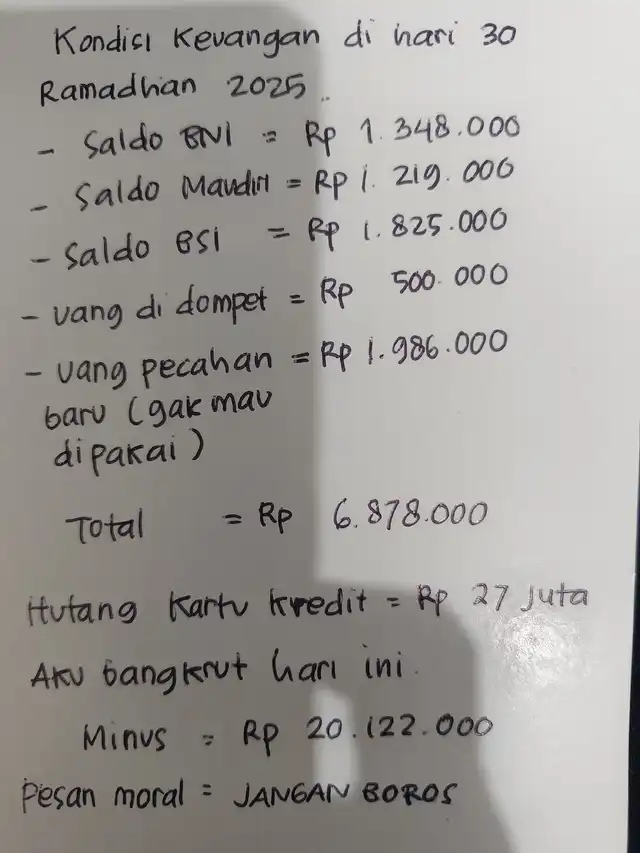 Kondisi Keuangan di hari 30
Ramadhan 2025..
- Saldo BNI = Rp 1.348.000
- Saldo Mandiri = Rp 1.219.000
- Saldo BSI = Rp 1.825.000
- uang di dompet = Rp 500.000
- uang pecahan = Rp 1.986.000
baru (gak mau
dipakai)
Total = Rp 6.878.000
Hutang Kartu kredit = Rp 27 Juta
Aku bangkrut hari ini.
Minus = Rp 20.122.000
Pesan moral = JANGAN BOROS